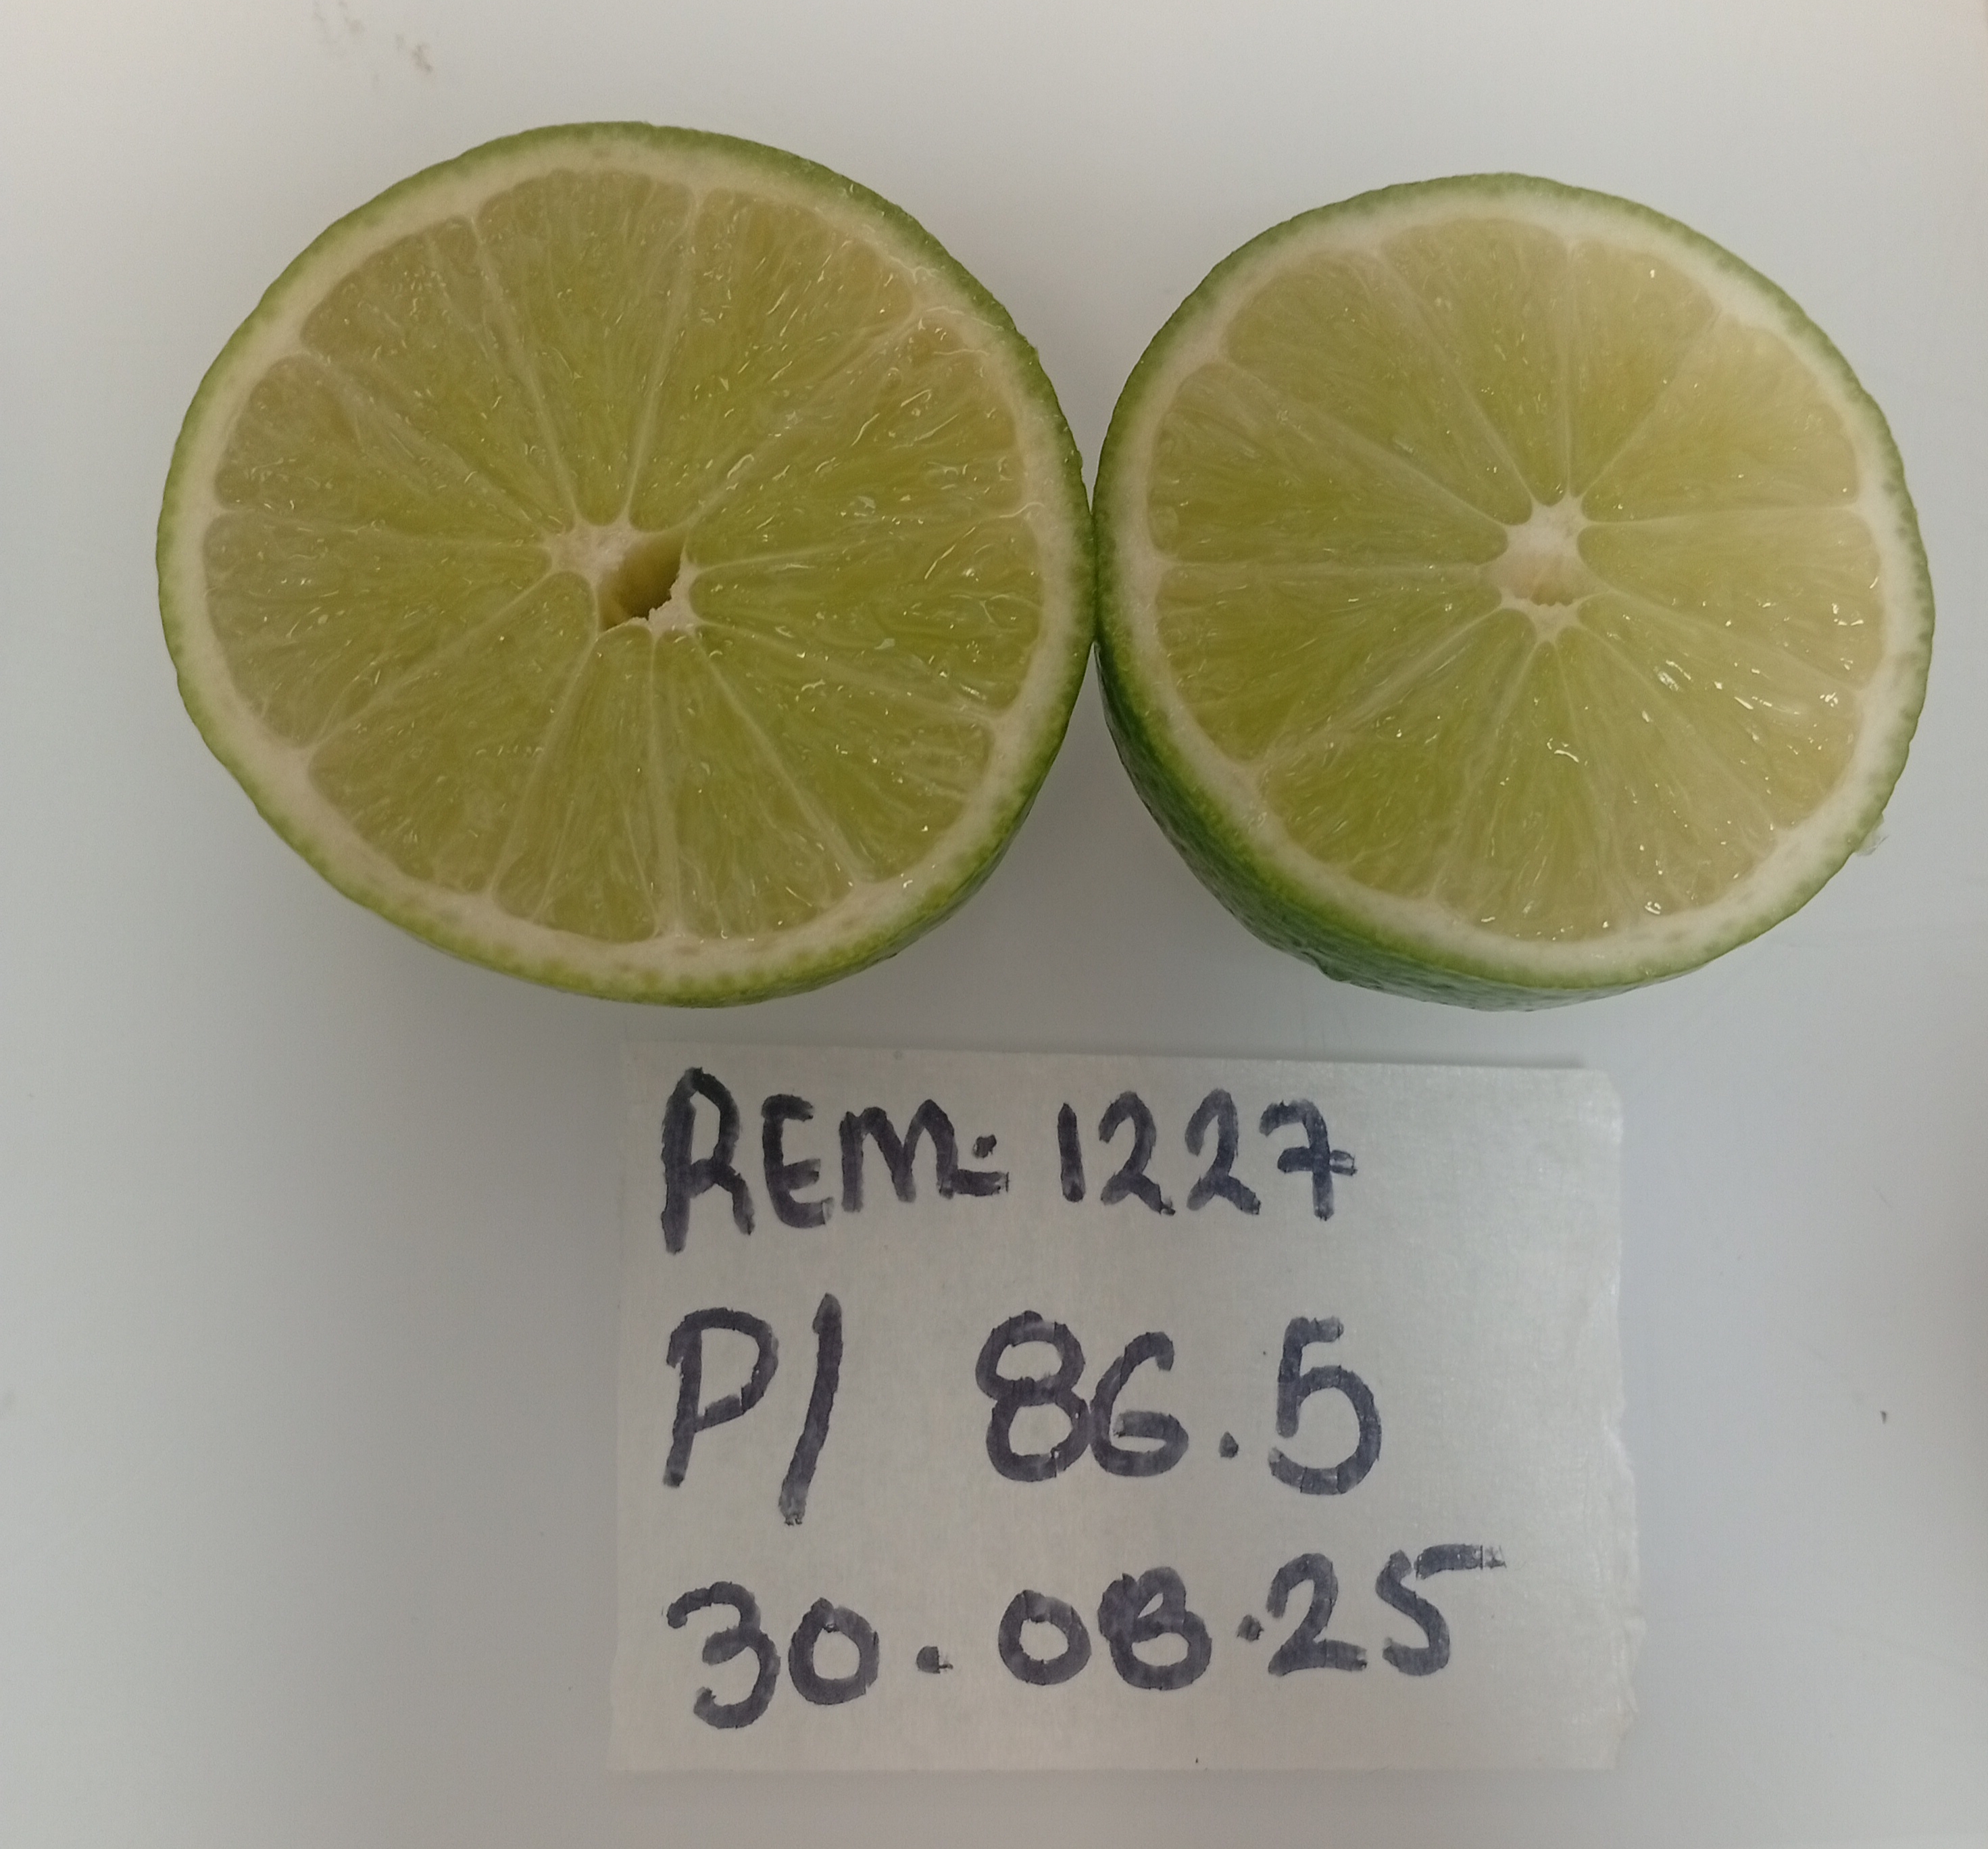 REM: 1227
P/ 86.5
30.08.25